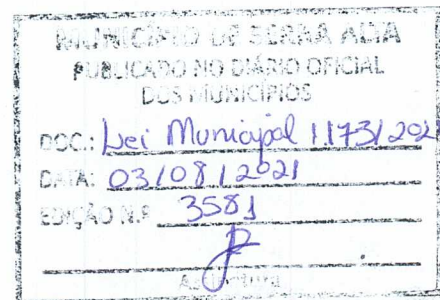 MUNICÍPIO DE SERRA ALTA
PUBLICADO NO DIÁRIO OFICIAL
DOS MUNICÍPIOS
DOC.: Lei Municipal 1.173/202
DATA: 03/08/2021
EDIÇÃO N.º 3581
Assinatura